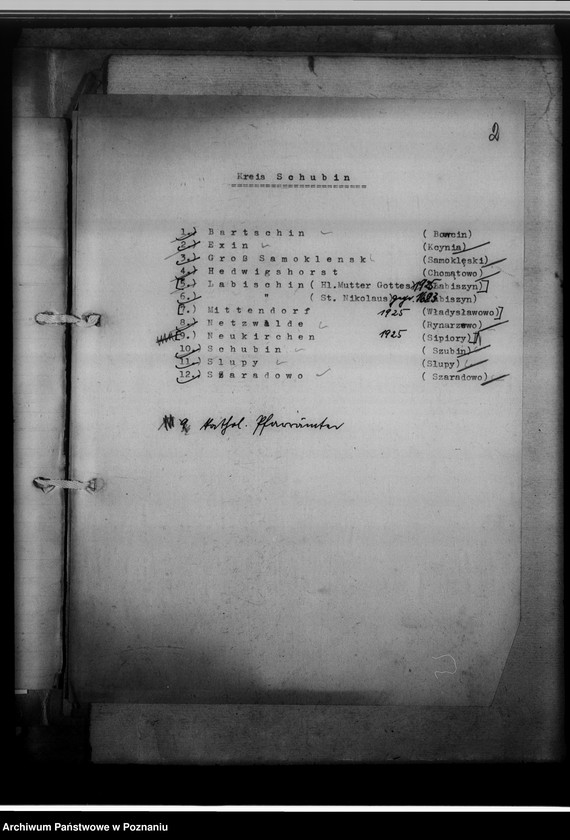 2
Kreis Schubin
1.) Bartschin ( Bowcin)
2.) Exin (Kcynia)
3.) Groß Samoklensk (Samoklęski)
4.) Hedwigshorst (Chomątowo)
5.) Labischin ( Hl.Mutter Gottes) 1925 (Łabiszyn)]
6.) " ( St. Nikolaus) gegr. (Łabiszyn)
[7.) Mittendorf 1925 (Władysławowo)]
8.) Netzwalde (Rynarzewo)
[9.) Neukirchen 1925 (Sipiory)]
10.) Schubin ( Szubin)
11.) Slupy (Slupy)
12.) Szaradowo ( Szaradowo)
9 kathol. Pfarrämter
Archiwum Państwowe w Poznaniu